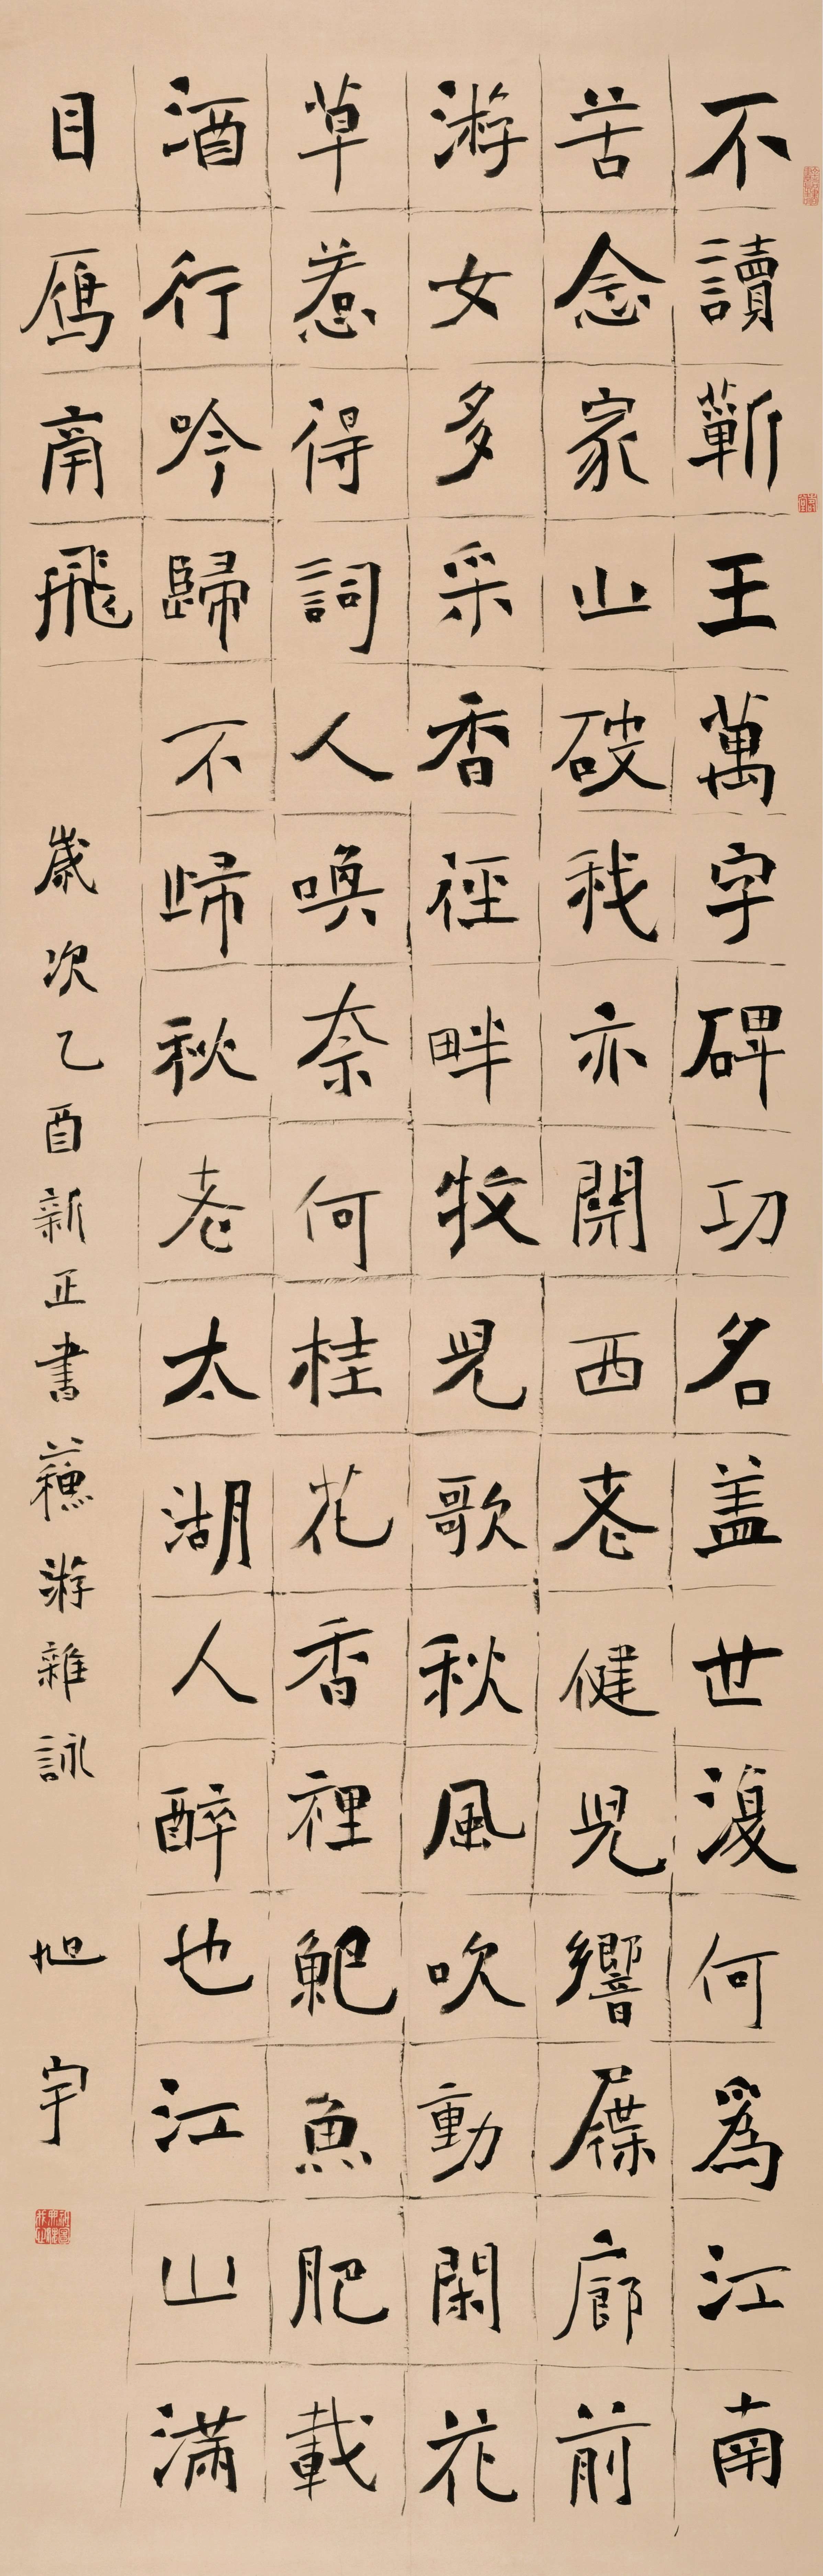 不讀蘄王萬字碑功名盖世復何爲江南
苦念家山破我亦關西老健兒響屧廊前
游女多采香徑畔牧兒歌秋風吹動閑花
草惹得詞人喚奈何桂花香裡䰾魚肥載
酒行吟歸不歸秋老太湖人醉也江山滿
目鴈南飛
歲次乙酉新正書蘇游雜詠 旭宇